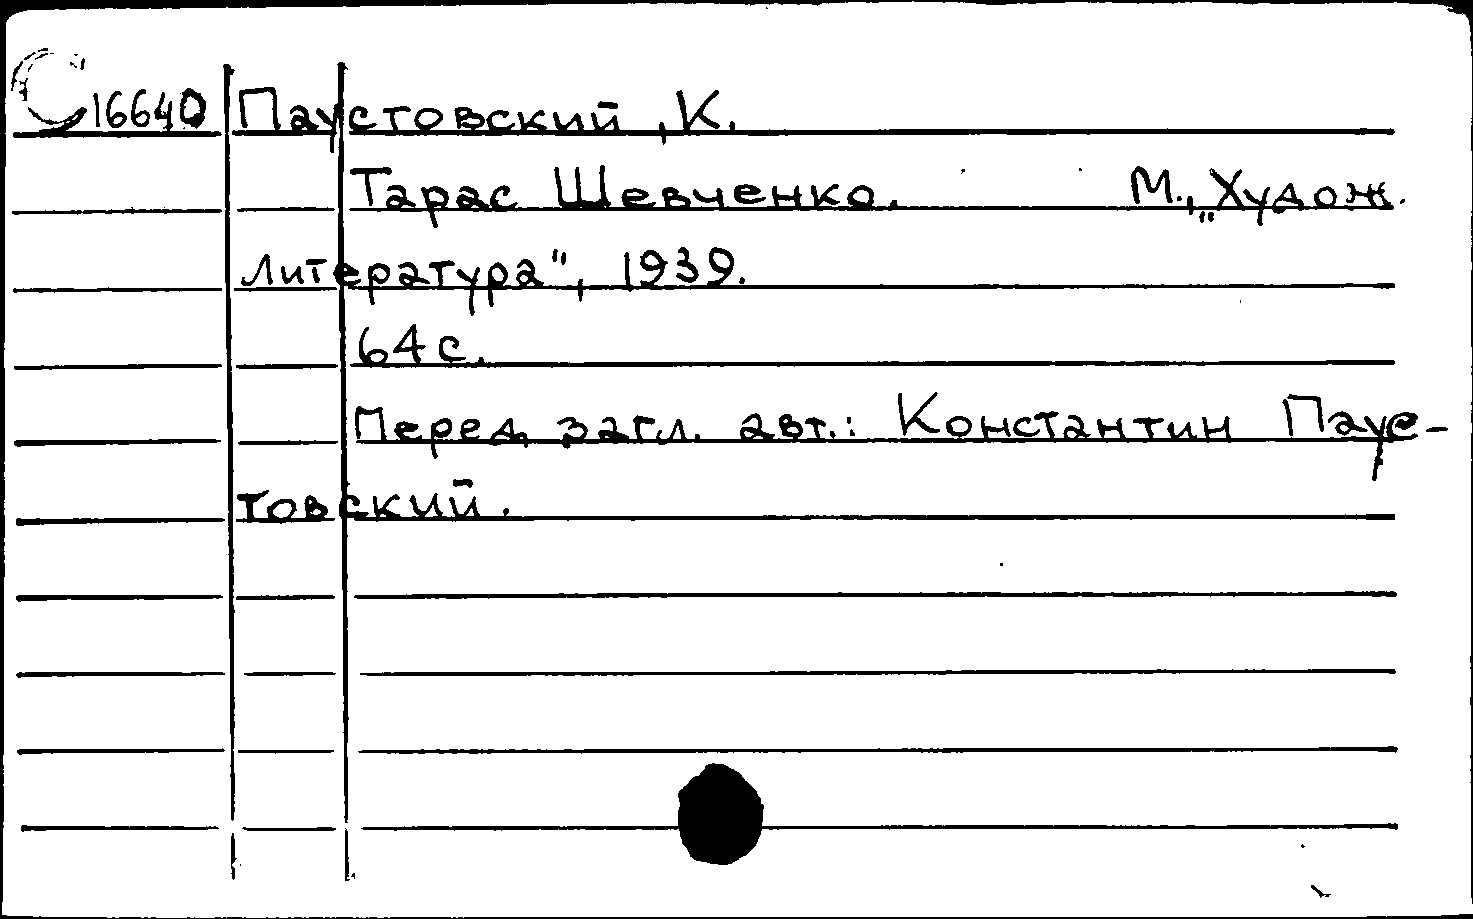 С16640 Паустовский, К.
Тарас Шевченко. М., „Худож.
литература", 1939.
64 с.
Перед загл. авт.: Константин Паус-
товский.